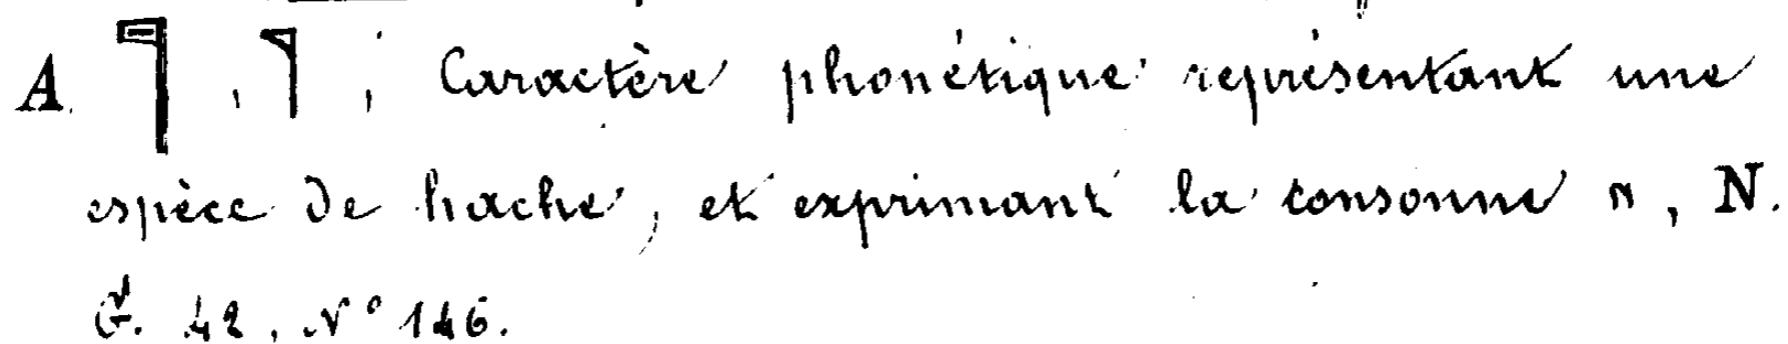 A. 𓊹, 𓊹; Caractère phonétique représentant une
espèce de hache, et exprimant la consonne n, N.
G. 42, N° 146.